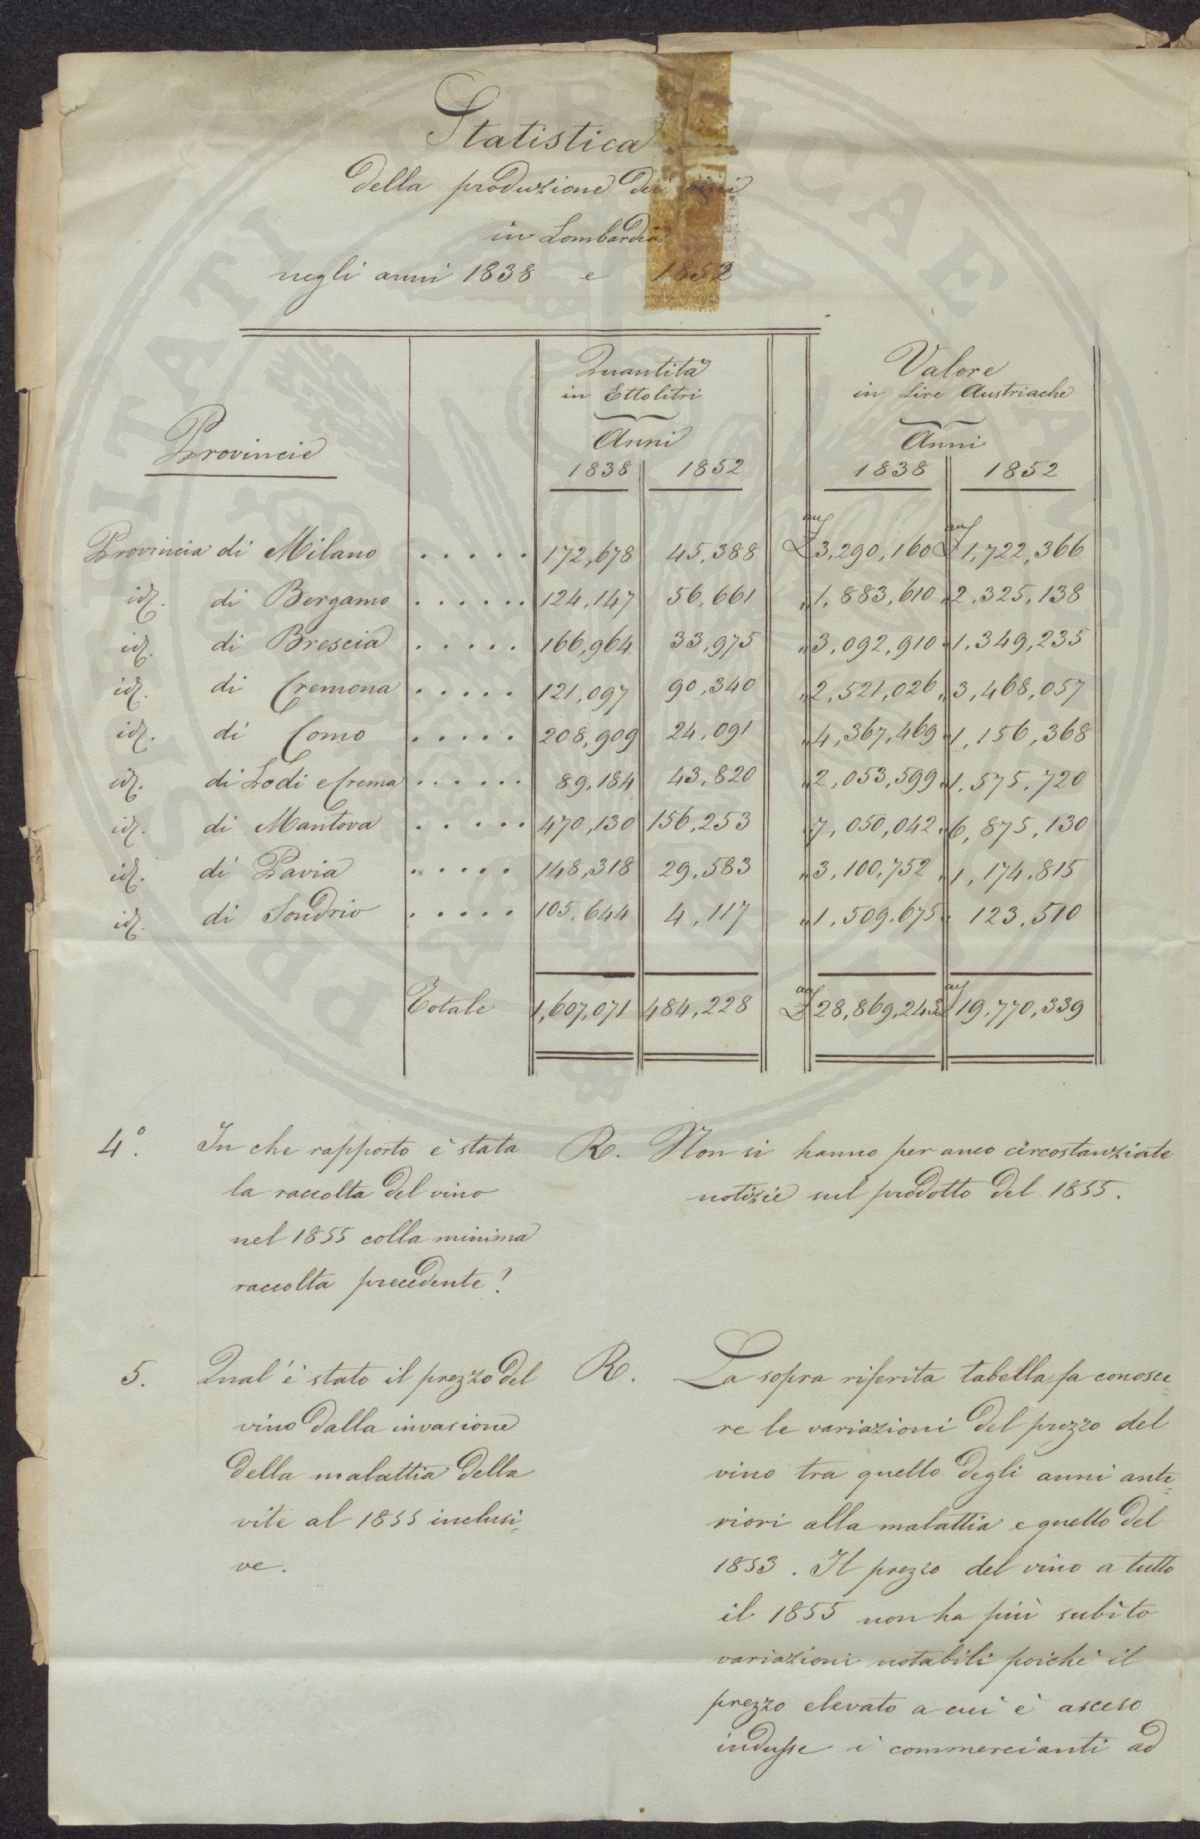 Statistica
della produzione dei vini
in Lombardia
negli anni 1838 e 1852
Provincie
Quantità
in Ettolitri
Anni
1838 1852
Valore
in Lire Austriache
Anni
1838 1852
Provincia di Milano . . . . . 172,678 45,388 au £ 3,290,160 au £ 1,722,366
id. di Bergamo . . . . . . 124,147 56,661 " 1,883,610 " 2,325,138
id. di Brescia . . . . . 166,964 33,975 " 3,092,910 " 1,349,235
id. di Cremona . . . . . 121,097 90,340 " 2,521,026 " 3,468,057
id. di Como . . . . . 208,909 24,091 " 4,367,469 " 1,156,368
id. di Lodi e Crema . . . . . . 89,184 43,820 " 2,053,599 " 1,575,720
id. di Mantova . . . . . 470,130 156,253 " 7,050,042 " 6,875,130
id. di Pavia . . . . . 148,318 29,583 " 3,100,752 " 1,174,815
id. di Sondrio . . . . . 105,644 4,117 " 1,509,675 " 123,510
Totale 1,607,071 484,228 au £ 28,869,243 au £ 19,770,339
4.° In che rapporto è stata
la raccolta del vino
nel 1855 colla minima
raccolta precedente?
R. Non si hanno per anco circostanziate
notizie sul prodotto del 1855.
5. Qual'è stato il prezzo del
vino dalla invasione
della malattia della
vite al 1855 inclusi=
ve.
R. La sopra riferita tabella fa conosce=
re le variazioni del prezzo del
vino tra quello degli anni ante=
riori alla malattia e quello del
1853. Il prezzo del vino a tutto
il 1855 non ha più subito
variazioni notabili poichè il
prezzo elevato a cui è asceso
indusse i commercianti ad